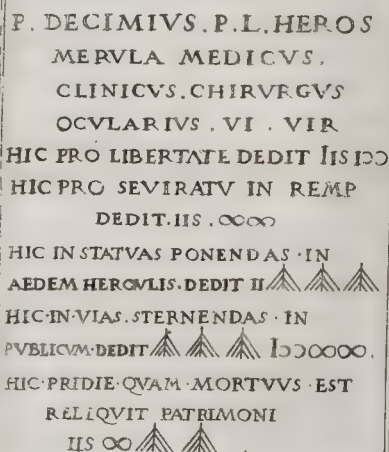 P. DECIMIVS. P. L. HEROS
MERVLA MEDICVS.
CLINICVS. CHIRVRGVS
OCVLARIVS . VI . VIR
HIC PRO LIBERTATE DEDIT IIS IↃↃ
HIC PRO SEVIRATV IN REMP
DEDIT. IIS . ∞∞
HIC IN STATVAS PONENDAS · IN
AEDEM HERCVLIS. DEDIT II ↂↂↂ
HIC·IN·VIAS. STERNENDAS · IN
PVBLICVM·DEDIT ↂↂↂ IↃↃ∞∞.
HIC·PRIDIE·QVAM·MORTVVS·EST
RELIQVIT PATRIMONI
IIS ∞ ↂↂ